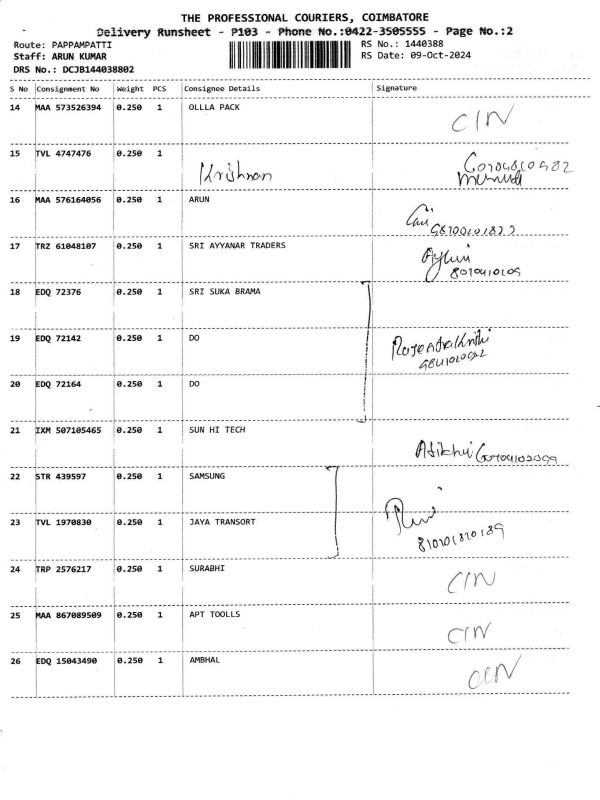 THE PROFESSIONAL COURIERS, COIMBATORE
Delivery Runsheet - P103 - Phone No.:0422-3505555 - Page No.:2
Route: PAPPAMPATTI
RS No.: 1440388
Staff: ARUN KUMAR
RS Date: 09-Oct-2024
DRS No.: DCJB144038802
S No Consignment No Weight PCS Consignee Details Signature
14 MAA 573526394 0.250 1 OLLLA PACK
CIN
15 TVL 4747476 0.250 1
Krishnan
16 MAA 576164056 0.250 1 ARUN
17 TRZ 61048107 0.250 1 SRI AYYANAR TRADERS
18 EDQ 72376 0.250 1 SRI SUKA BRAMA
19 EDQ 72142 0.250 1 DO
20 EDQ 72164 0.250 1 DO
21 IXM 507105465 0.250 1 SUN HI TECH
22 STR 439597 0.250 1 SAMSUNG
23 TVL 1970830 0.250 1 JAYA TRANSORT
24 TRP 2576217 0.250 1 SURABHI
CIN
25 MAA 867089509 0.250 1 APT TOOLLS
CIN
26 EDQ 15043490 0.250 1 AMBHAL